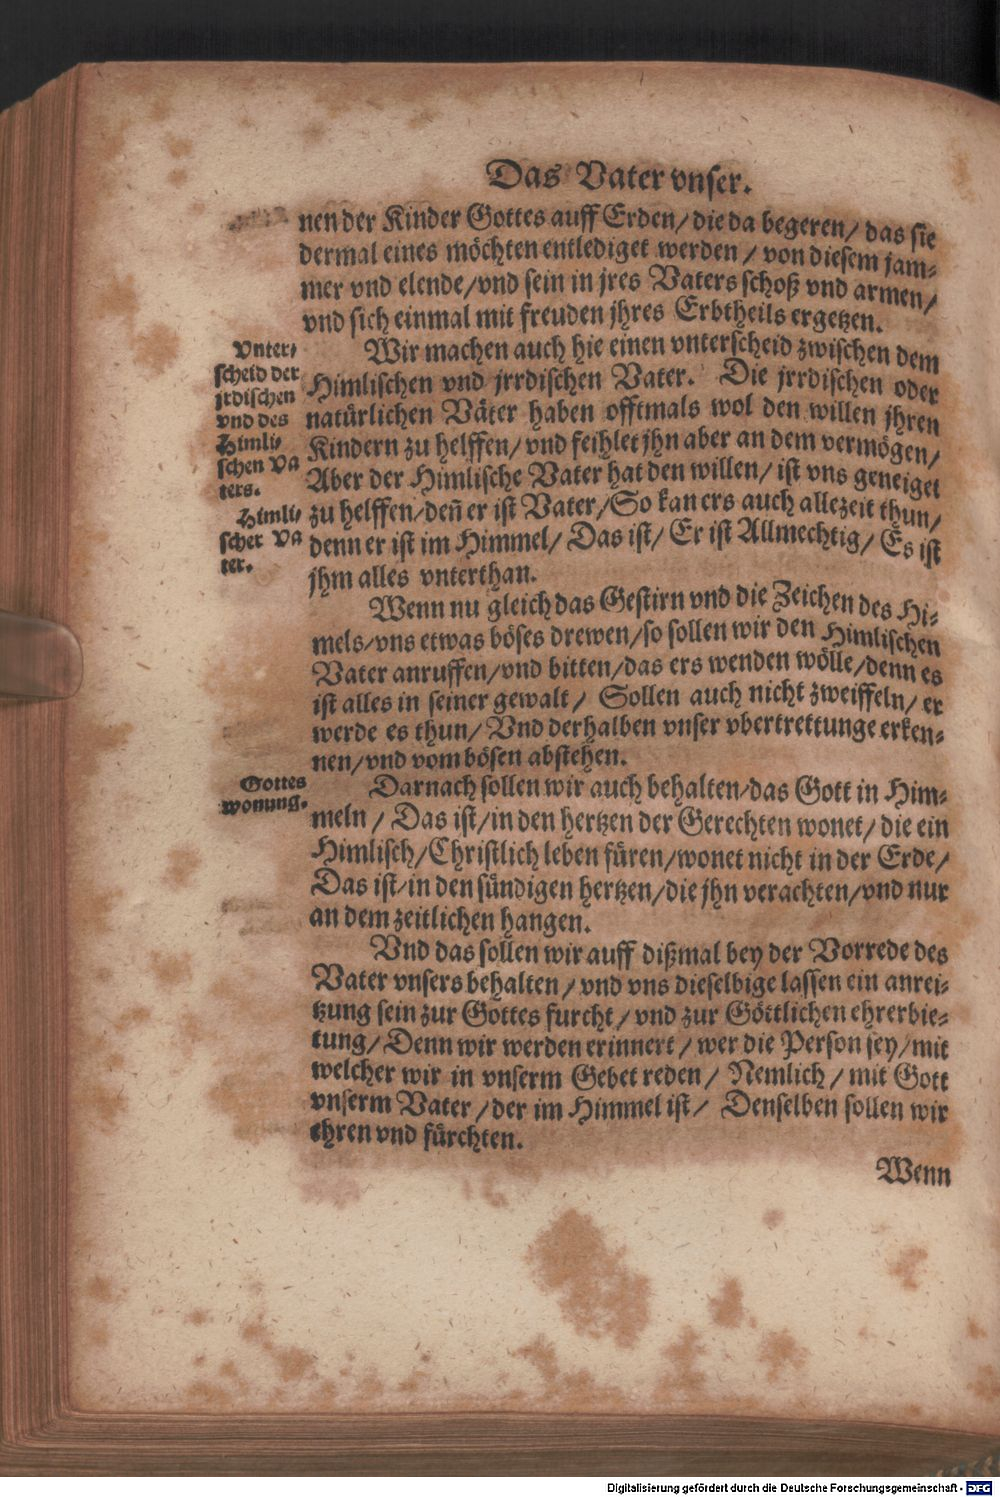 Das Vater vnser.
nen der Kinder Gottes auff Erden/ die da begeren/ das sie
dermal eines möchten entlediget werden / von diesem jam-
mer vnd elende/vnd sein in jres Vaters schoß vnd armen/
vnd sich einmal mit freuden jhres Erbtheils ergetzen.
Vnter-
scheid der
jrdischen
vnd des
Himli-
schen Va
ters.
Wir machen auch hie einen vnterscheid zwischen dem
Himlischen vnd jrrdischen Vater. Die jrrdischen oder
natürlichen Väter haben offtmals wol den willen jhren
Kindern zu helffen/ vnd feihlet jhn aber an dem vermögen/
Aber der Himlische Vater hat den willen/ ist vns geneiget
Himli-
scher Va
ter.
zu helffen/deñ er ist Vater/So kan ers auch allezeit thun/
denn er ist im Himmel/ Das ist/ Er ist Allmechtig/ Es ist
jhm alles vnterthan.
Wenn nu gleich das Gestirn vnd die Zeichen des Hi-
mels/vns etwas böses drewen/so sollen wir den Himlischen
Vater anruffen/vnd bitten/das ers wenden wölle/denn es
ist alles in seiner gewalt/ Sollen auch nicht zweiffeln/ er
werde es thun/ Vnd derhalben vnser vbertrettunge erken-
nen/vnd vom bösen abstehen.
Gottes
wonung.
Darnach sollen wir auch behalten/das Gott in Him-
meln / Das ist/in den hertzen der Gerechten wonet/ die ein
Himlisch/Christlich leben füren/wonet nicht in der Erde/
Das ist/in den sündigen hertzen/die jhn verachten/vnd nur
an dem zeitlichen hangen.
Vnd das sollen wir auff dißmal bey der Vorrede des
Vater vnsers behalten / vnd vns dieselbige lassen ein anrei-
tzung sein zur Gottes furcht / vnd zur Göttlichen ehrerbie-
tung/ Denn wir werden erinnert / wer die Person sey/mit
welcher wir in vnserm Gebet reden/ Nemlich / mit Gott
vnserm Vater /der im Himmel ist/ Denselben sollen wir
ehren vnd fürchten.
Wenn
Digitalisierung gefördert durch die Deutsche Forschungsgemeinschaft - DFG